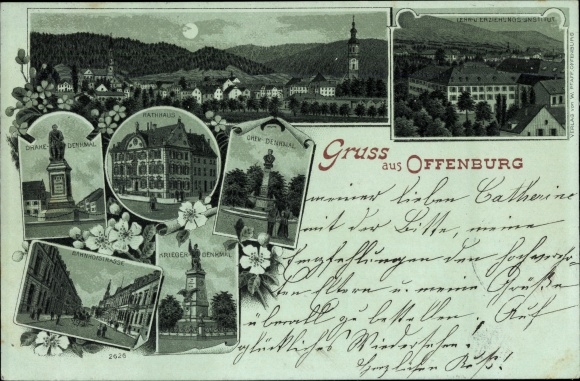 LEHR-U. ERZIEHUNGS-INSTITUT
VERLAG VON W. PFAFF, OFFENBURG
RATHHAUS
DRAKE-DENKMAL
OKEN-DENKMAL
Gruss aus OFFENBURG
meiner lieben Catherine
mit der Bitte, meine
Empfehlungen den
Eltern u. meine Grüße
überall zu bestellen. Auf
glückliches Wiedersehen!
Herzlichen Kuß!
BAHNHOFSTRASSE
KRIEGER DENKMAL
2626